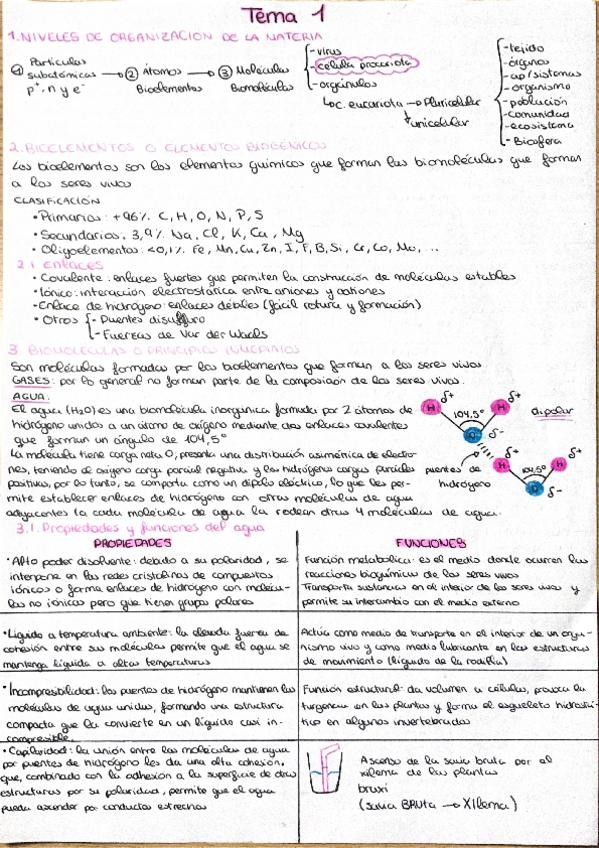 Tema 1
1. NIVELES DE ORGANIZACION DE LA MATERIA
① Partículas subatómicas p⁺, n y e⁻ → ② Átomos Bioelementos → ③ Moléculas Biomoléculas
-virus
-célula procariota
-orgánulos
↳c. eucariota → Pluricelular
↓ unicelular
-tejido
-órganos
-ap/sistemas
-organismo
-población
-comunidad
-ecosistema
-Biosfera
2. BIOELEMENTOS O ELEMENTOS BIOGÉNICOS
Los bioelementos son los elementos químicos que forman las biomoléculas que forman
a los seres vivos
CLASIFICACIÓN
• Primarios: +96% C, H, O, N, P, S
• Secundarios: 3,9% Na, Cl, K, Ca, Mg
• Oligoelementos: <0,1% Fe, Mn, Cu, Zn, I, F, B, Si, Cr, Co, Mo, ...
2.1. ENLACES
• Covalente: enlaces fuertes que permiten la construcción de moléculas estables
• Iónico: interacción electrostática entre aniones y cationes
-Enlace de hidrógeno: enlaces débiles (fácil rotura y formación)
• Otros - Puentes disulfuro
- Fuerzas de Van der Waals
3. BIOMOLÉCULAS O PRINCIPIOS INMEDIATOS
Son moléculas formadas por los bioelementos que forman a los seres vivos
GASES: por lo general no forman parte de la composición de los seres vivos.
AGUA:
El agua (H₂O) es una biomolécula inorgánica formada por 2 átomos de
hidrógeno unidos a un átomo de oxígeno mediante dos enlaces covalentes
que forman un ángulo de 104,5°
La molécula tiene carga neta 0, presenta una distribución asimétrica de electro-
nes, teniendo el oxígeno carga parcial negativa y los hidrógenos cargas parciales
positivas, por lo tanto, se comporta como un dipolo eléctrico, lo que les per-
mite establecer enlaces de hidrógeno con otras moléculas de agua
adyacentes (a cada molécula de agua la rodean otras 4 moléculas de agua.
δ+ δ+
H H
104,5°
O δ-
dipolar
puentes de hidrógeno
δ+ δ+
H H
104,5°
O δ-
3.1. Propiedades y funciones del agua
PROPIEDADES
• Alto poder disolvente: debido a su polaridad, se
interpone en las redes cristalinas de compuestos
iónicos o forma enlaces de hidrógeno con molécu-
las no iónicas pero que tienen grupos polares
FUNCIONES
Función metabólica: es el medio donde ocurren las
reacciones bioquímicas de los seres vivos
Transporta sustancias en el interior de los seres vivos y
permite su intercambio con el medio externo
• Líquido a temperatura ambiente: la elevada fuerza de
cohesión entre sus moléculas permite que el agua se
mantenga líquida a altas temperaturas
Actúa como medio de transporte en el interior de un orga-
nismo vivo y como medio lubricante en las estructuras
de movimiento (líquido de la rodilla)
• Incompresibilidad: los puentes de hidrógeno mantienen las
moléculas de agua unidas, formando una estructura
compacta que la convierte en un líquido casi in-
compresible.
Función estructural: da volumen a células, provoca la
turgencia en las plantas y forma el esqueleto hidrostá-
tico en algunos invertebrados
• Capilaridad: la unión entre las moléculas de agua
por puentes de hidrógeno les da una alta cohesión.
que, combinado con la adhesión a la superficie de otras
estructuras por su polaridad, permite que el agua
pueda ascender por conductos estrechos
Ascenso de la savia bruta por el
xilema de las plantas
bruxi
(savia BRUta → XIlema)